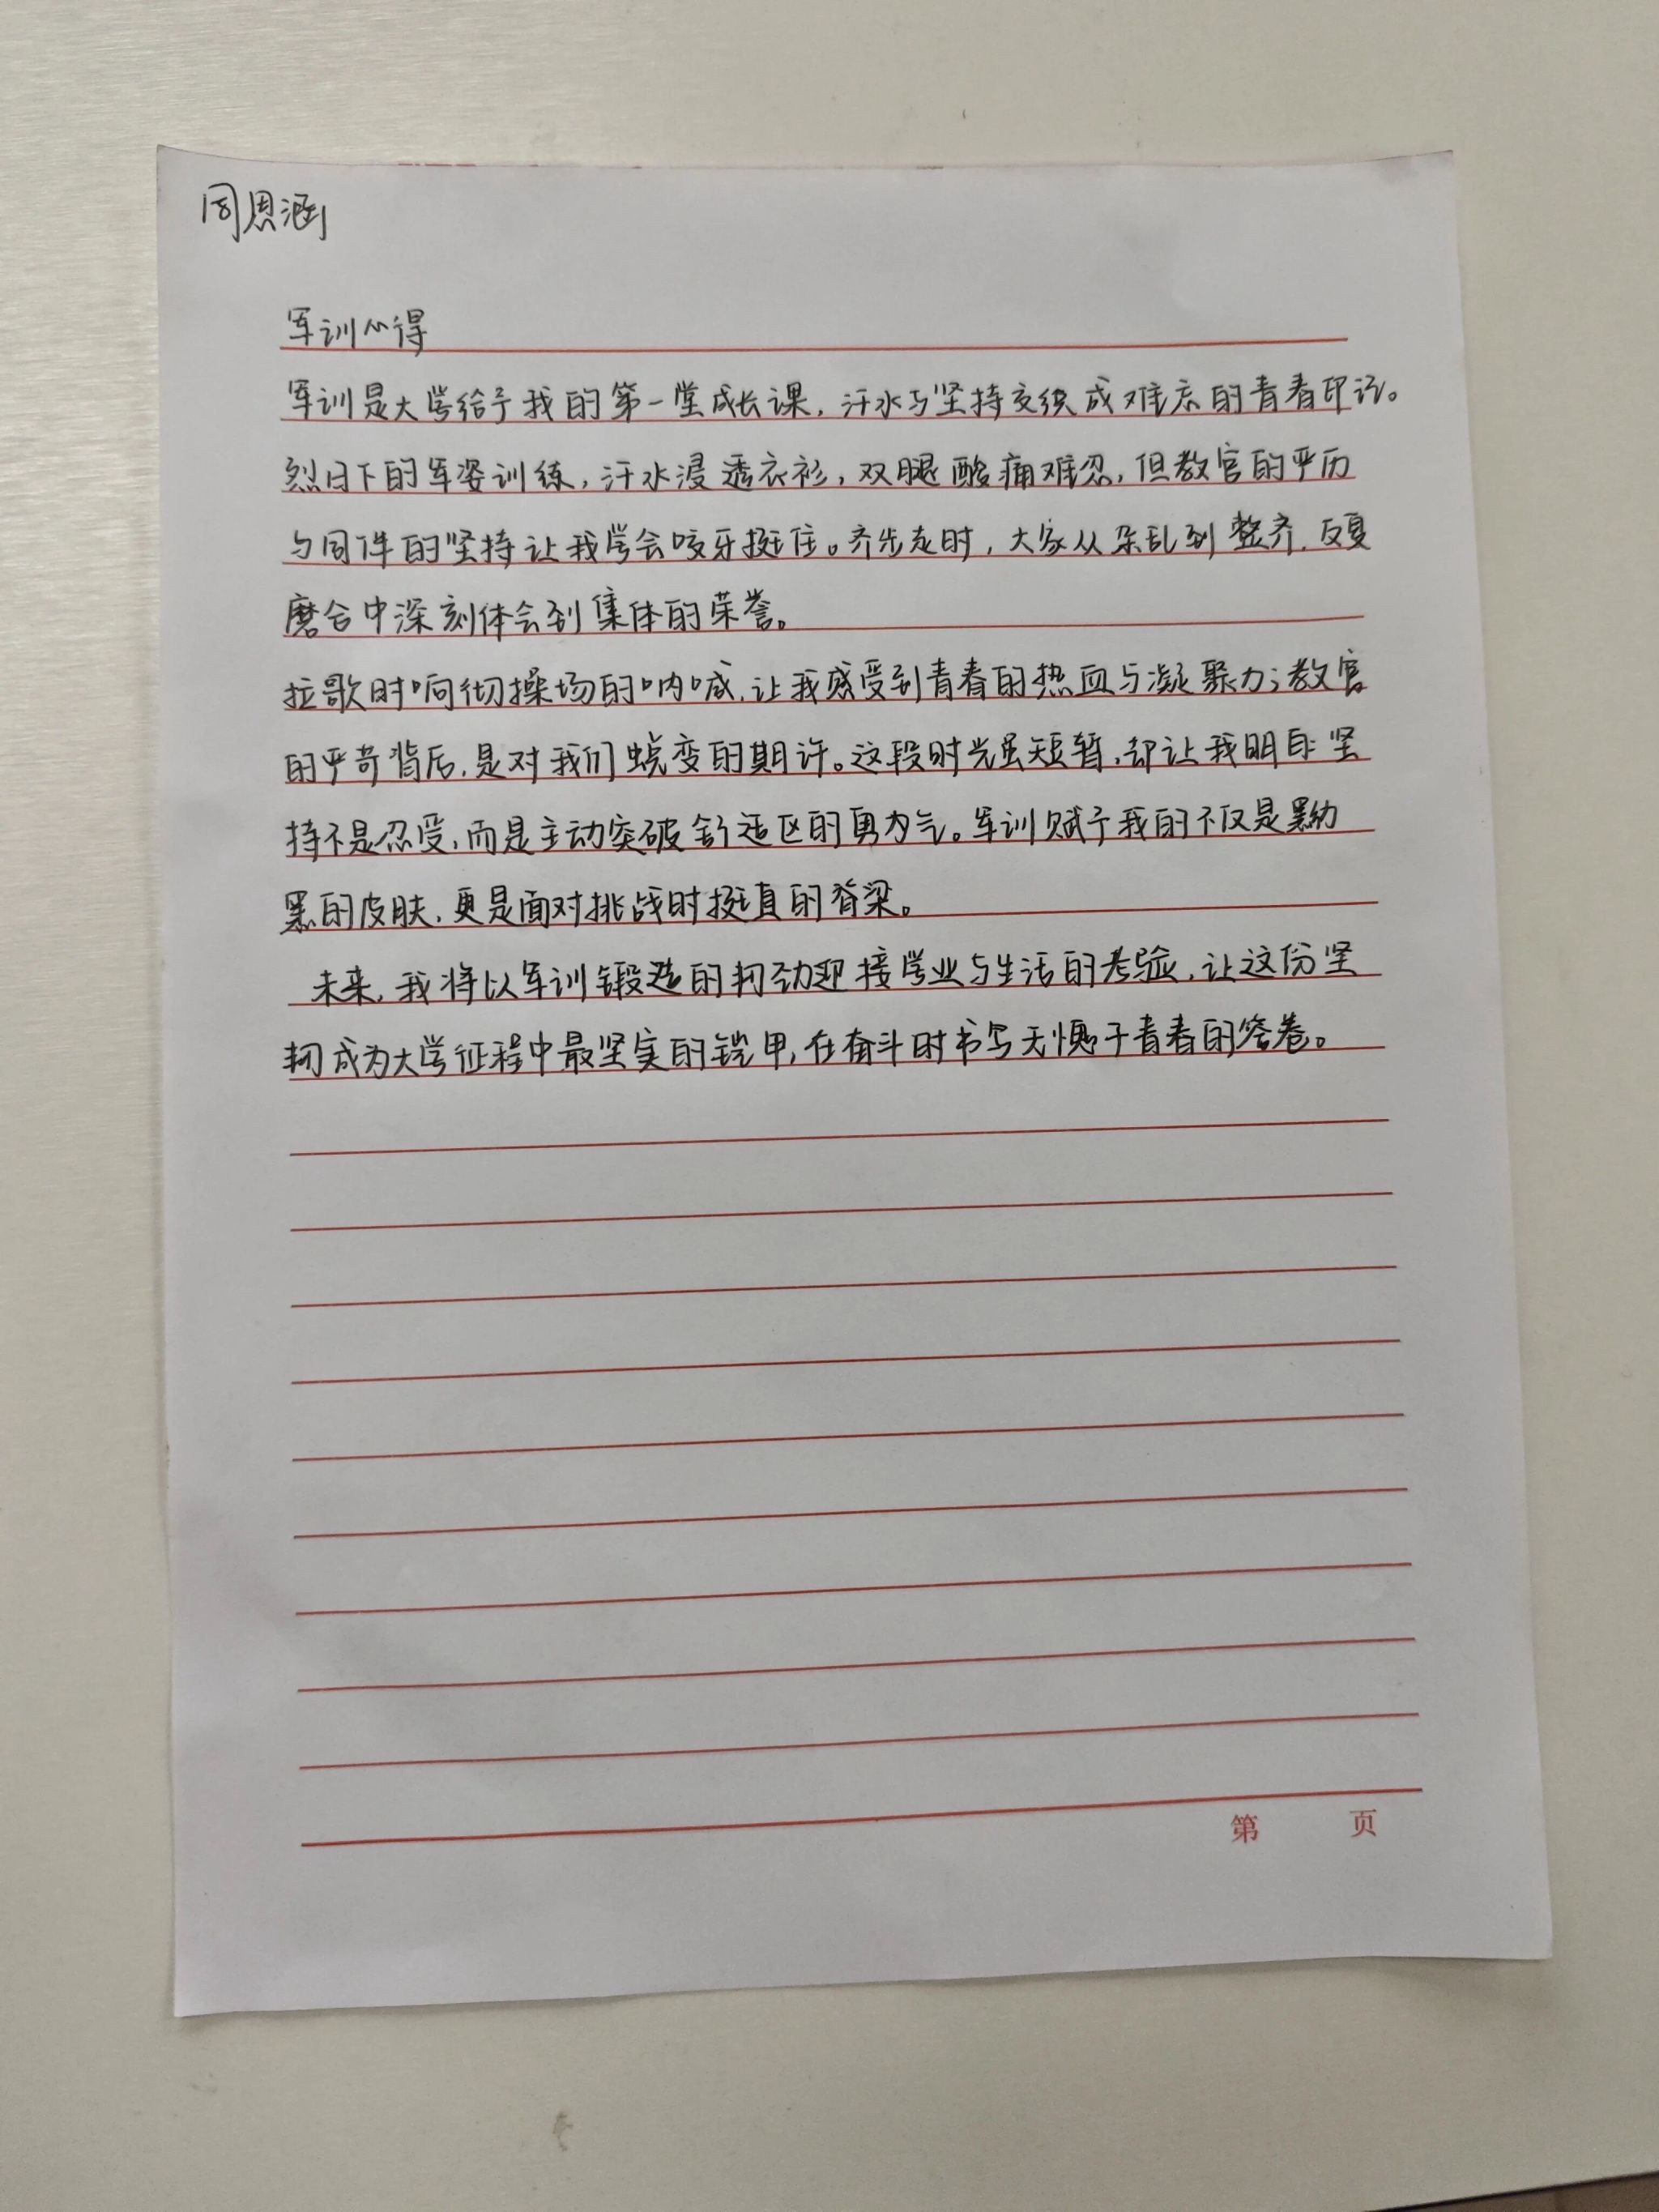 周恩涵
军训心得
军训是大学给予我的第一堂成长课，汗水与坚持交织成难忘的青春印记。
烈日下的军姿训练，汗水浸透衣衫，双腿酸痛难忍，但教官的严厉
与同伴的坚持让我学会咬牙挺住。齐步走时，大家从杂乱到整齐，反复
磨合中深刻体会到集体的荣誉。
拉歌时响彻操场的呐喊，让我感受到青春的热血与凝聚力；教官
的严苛背后，是对我们蜕变的期许。这段时光虽短暂，却让我明白：坚
持不是忍受，而是主动突破舒适区的勇气。军训赋予我的不仅是黝
黑的皮肤，更是面对挑战时挺直的脊梁。
未来，我将以军训锻造的韧劲迎接学业与生活的考验，让这份坚
韧成为大学征程中最坚实的铠甲，在奋斗时书写无愧于青春的答卷。
第 页